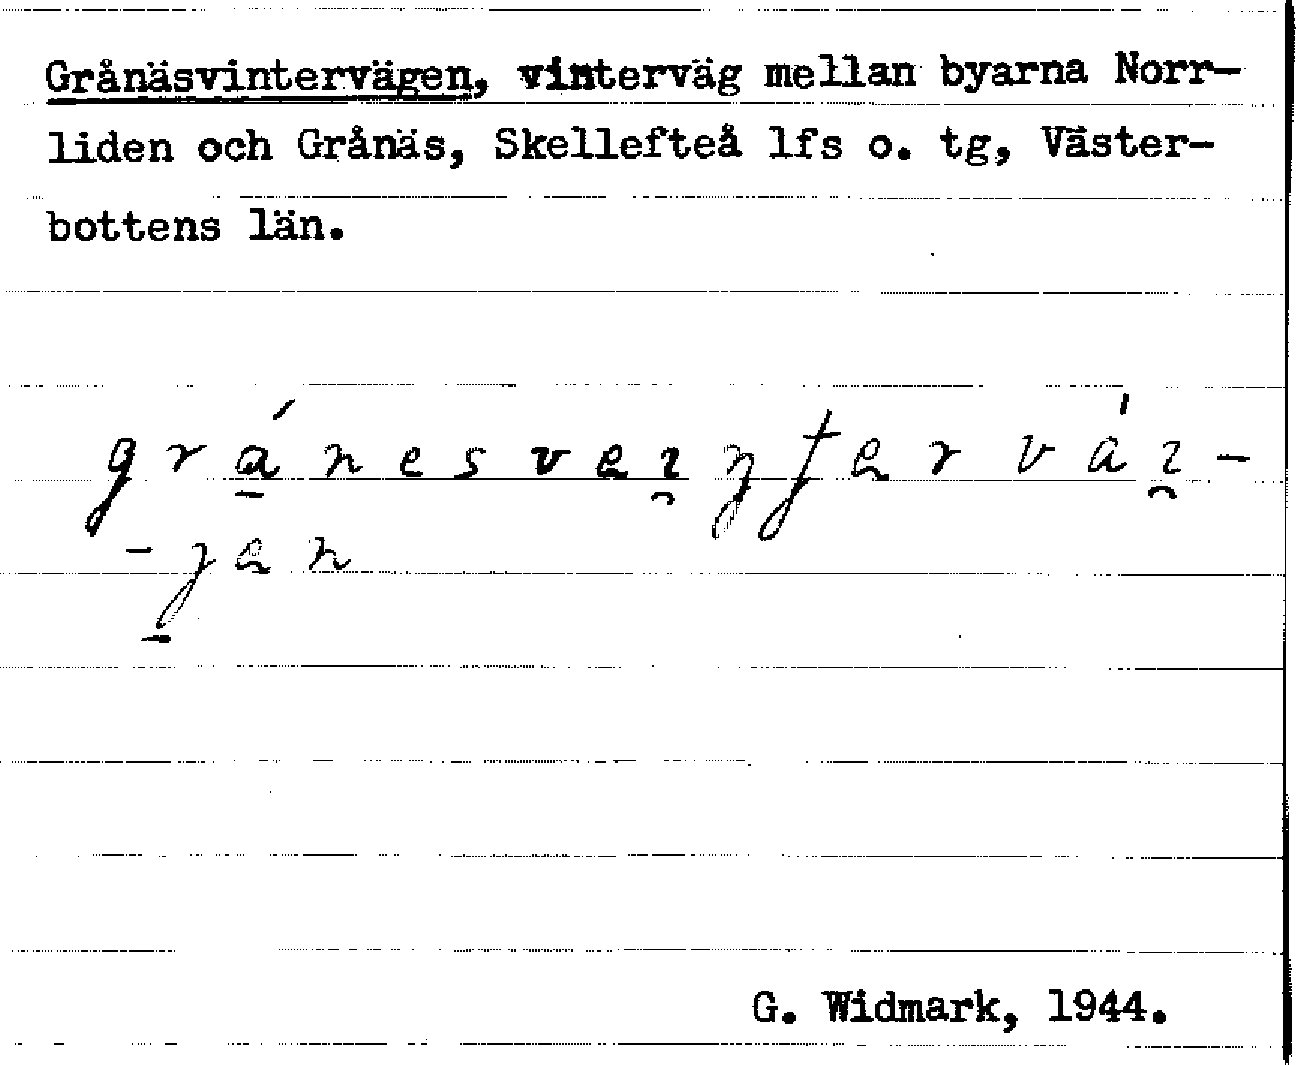 Grånäsvintervägen, vinterväg mellan byarna Norr-
liden och Grånäs, Skellefteå lfs o. tg, Väster-
bottens län.
G. Widmark, 1944.